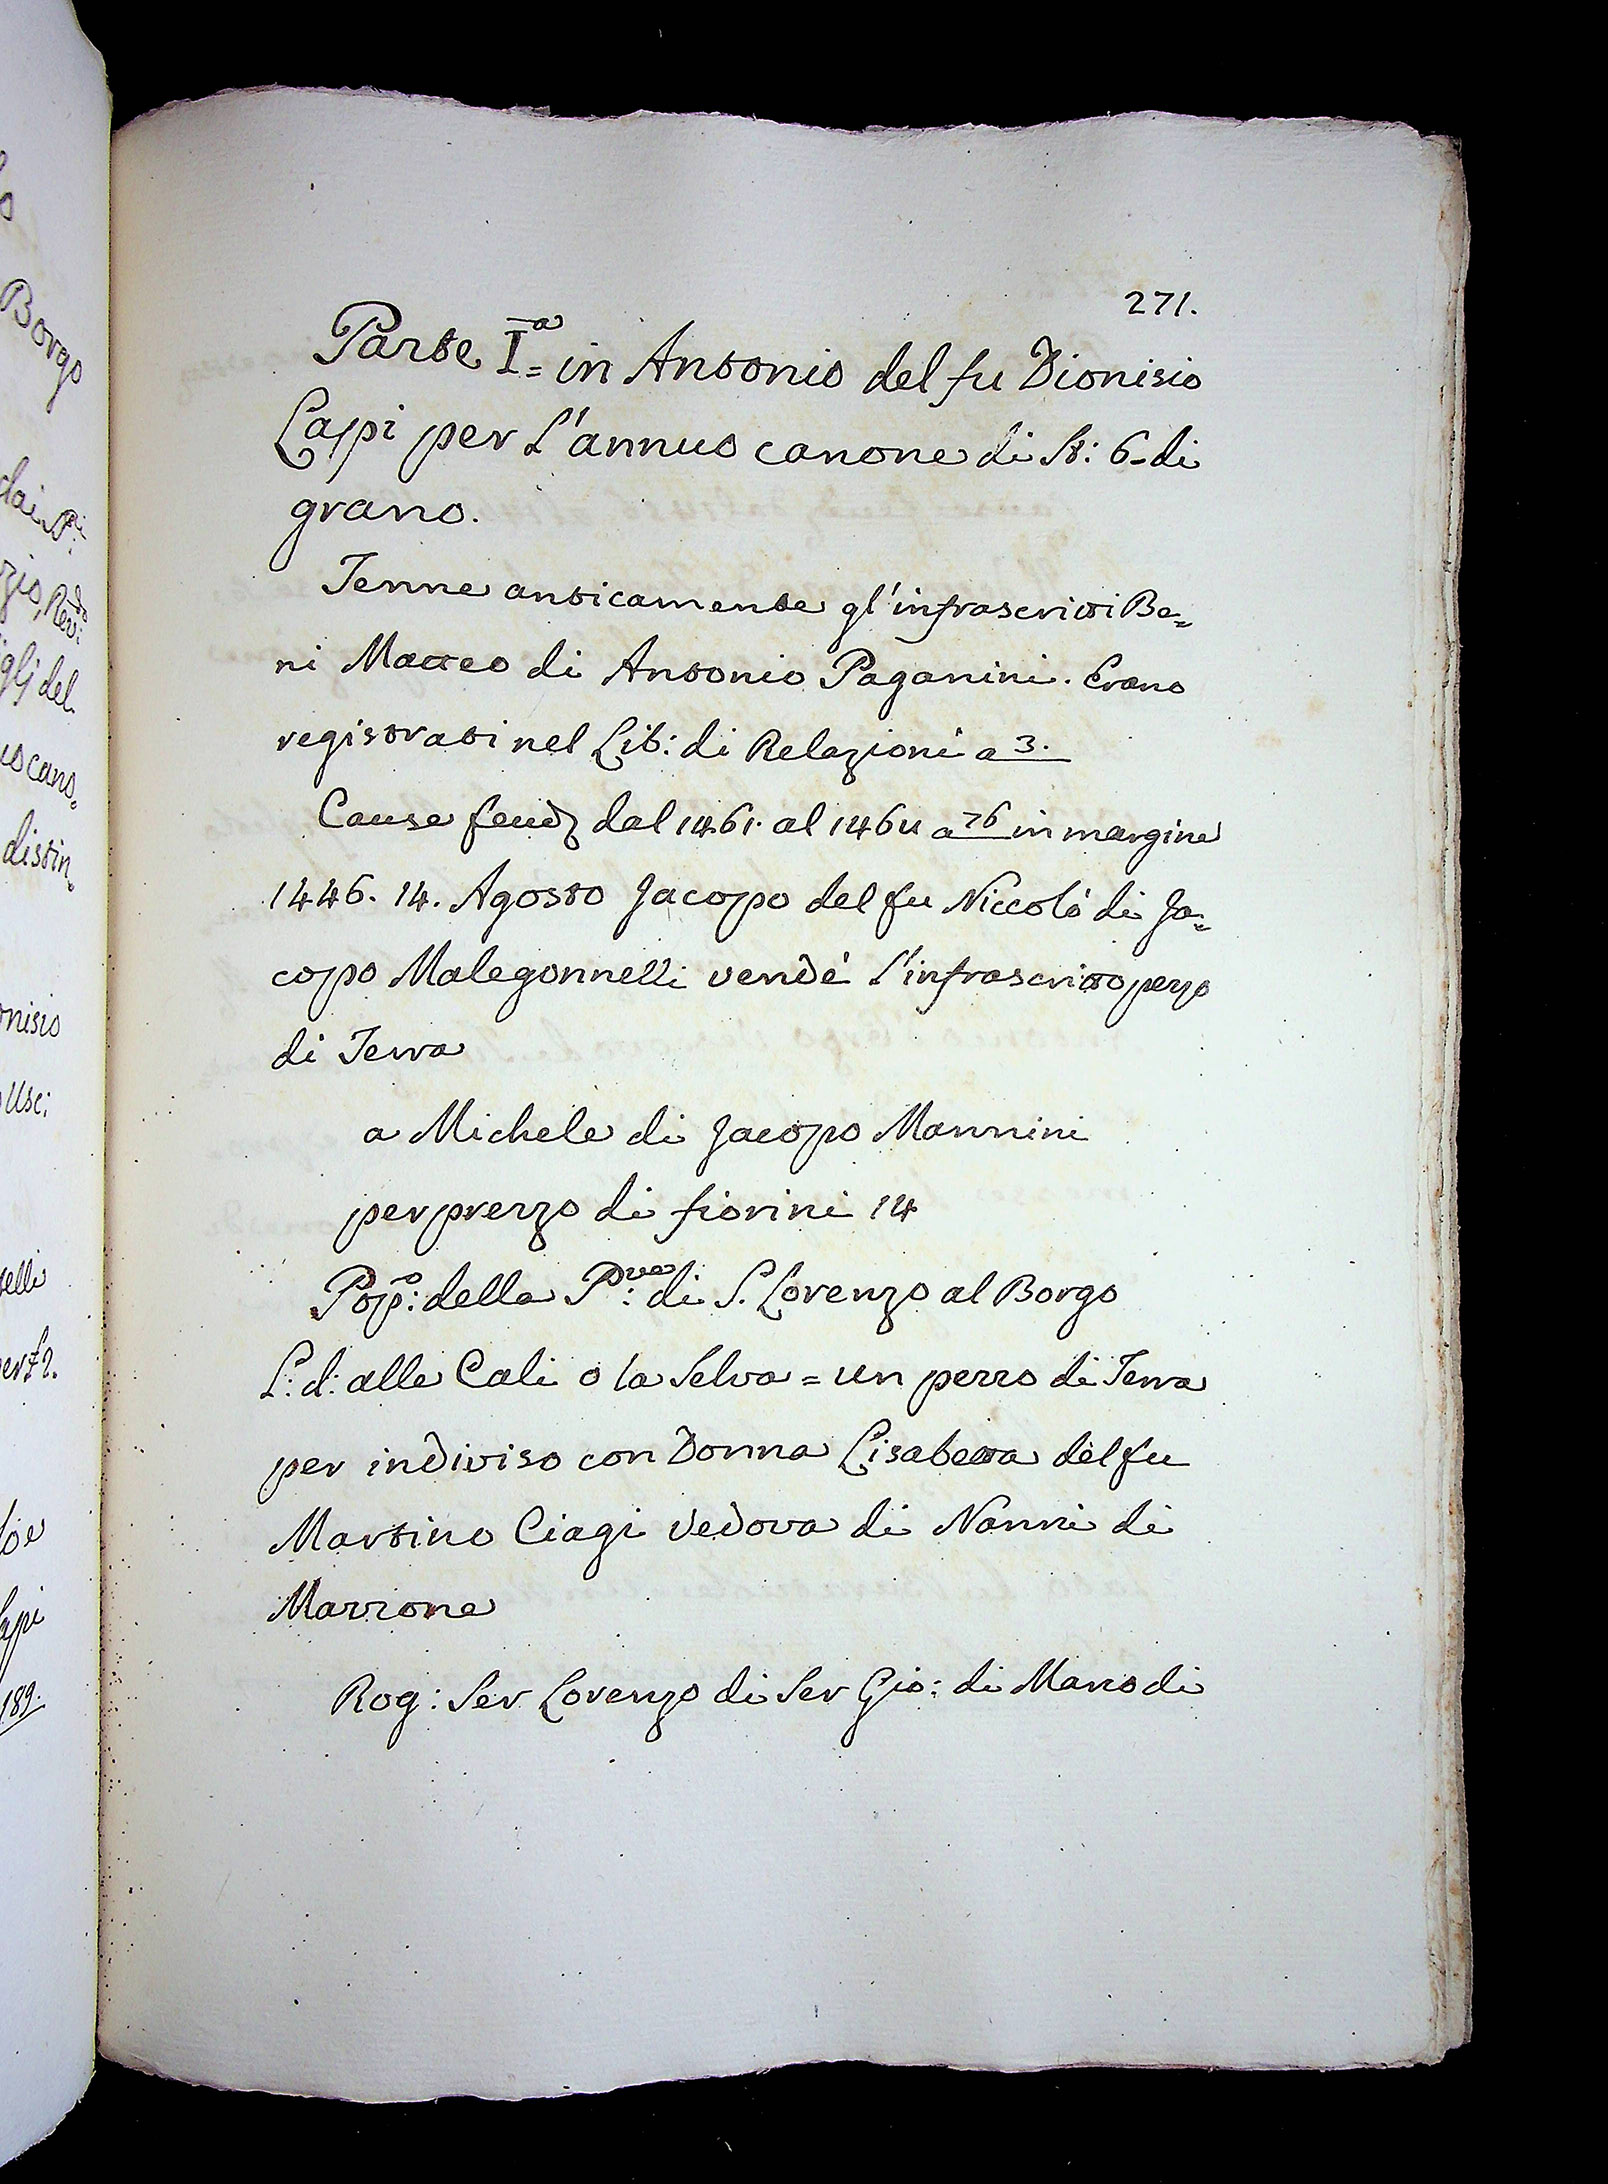 271.
Parte I.ª in Antonio del fu Dionisio
Lapi per L'annuo canone di St: 6- di
grano.
Tenne anticamente gl'infrascritti Be=
ni Matteo di Antonio Paganini. Erano
registrati nel Lib: di Relazioni a 3.
Cause dal 1461. al 1464 a 76 in margine
1446. 14. Agosto Jacopo del fu Niccolò di Ja=
copo Malegonnelli vendé l'infrascritto pezzo
di Terra
a Michele di Jacopo Mannini
per prezzo di fiorini 14
Pop:º della P:ve di S. Lorenzo al Borgo
L: d: alle Cali o la Selva = un pezzo di Terra
per indiviso con Donna Lisabetta del fu
Martino Ciagi Vedova di Nanni di
Marrone
Rog: Ser Lorenzo di Ser Gio: di Marco di